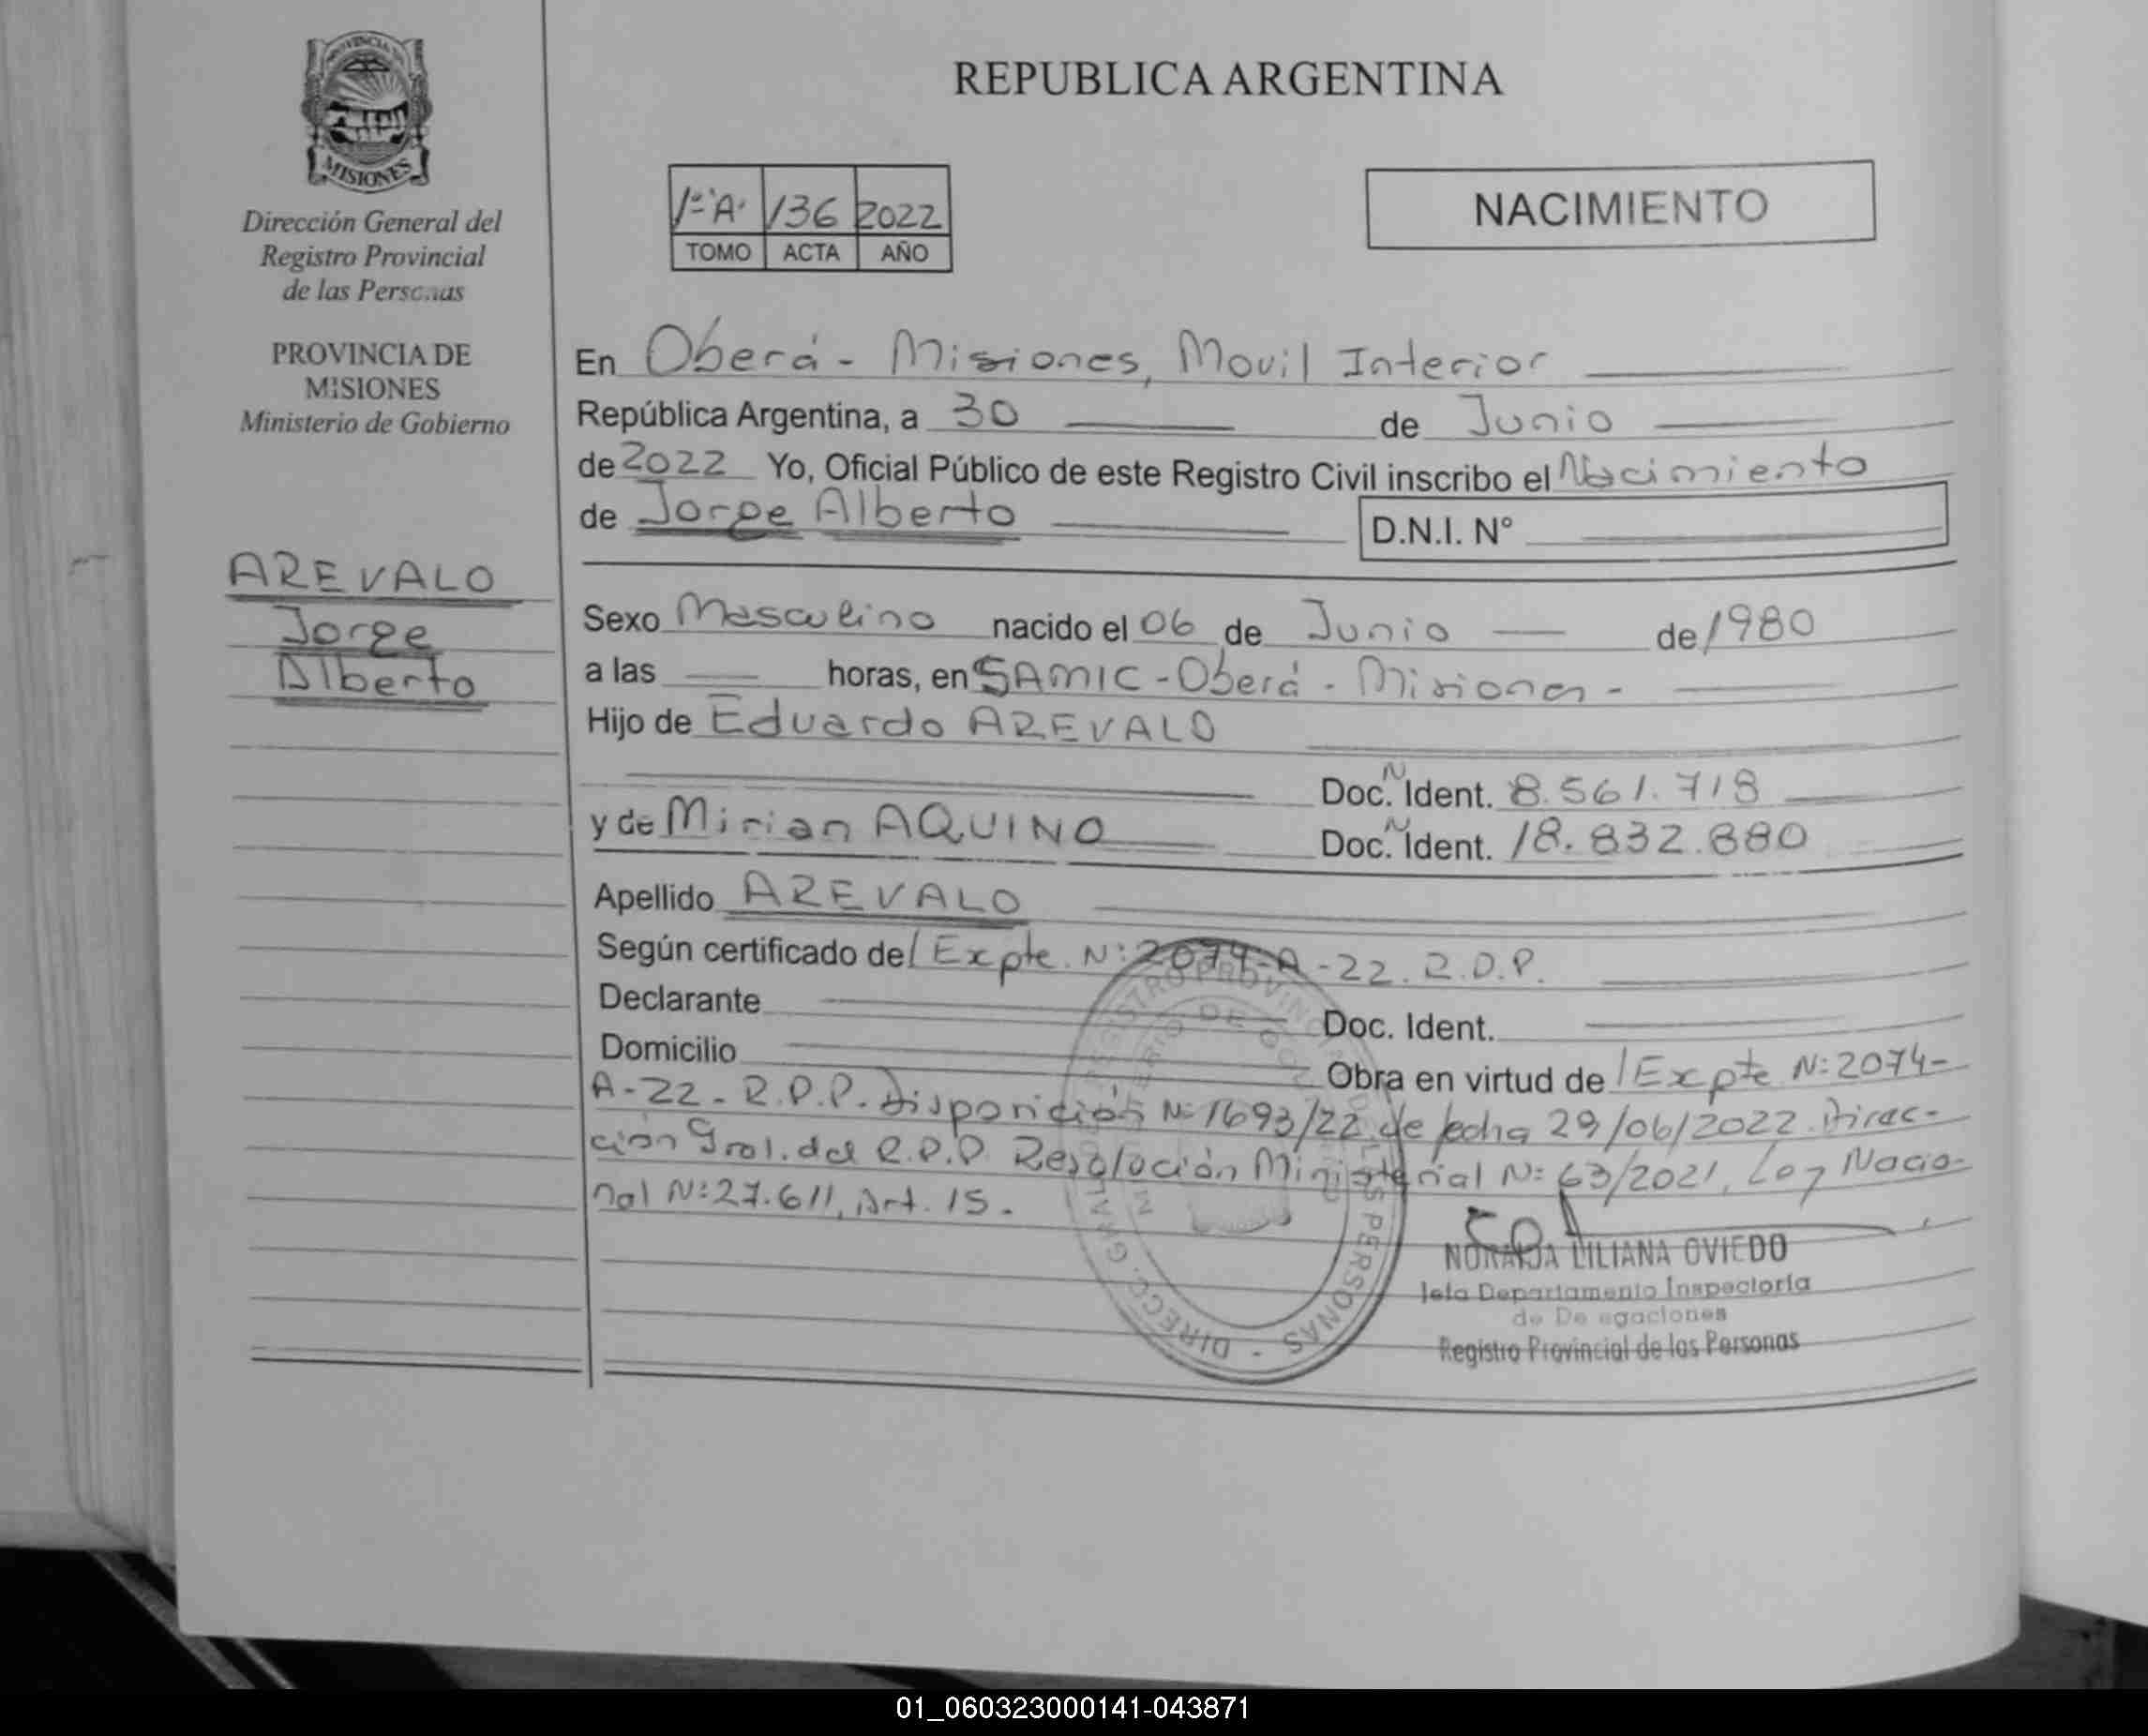 PROVINCIA DE
MISIONES
Dirección General del
Registro Provincial
de las Personas
PROVINCIA DE
MISIONES
Ministerio de Gobierno
AREVALO
Jorge
Alberto
REPUBLICA ARGENTINA
1º "A" 136 2022
TOMO ACTA AÑO
NACIMIENTO
En Oberá - Misiones, Movil Interior
República Argentina, a 30 de Junio
de 2022 Yo, Oficial Público de este Registro Civil inscribo el Nacimiento
de Jorge Alberto D.N.I. Nº
Sexo Masculino nacido el 06 de Junio de 1980
a las horas, en SAMIC - Oberá - Misiones -
Hijo de Eduardo AREVALO
Doc. N Ident. 8.561.718
y de Mirian AQUINO Doc. N Ident. 18.832.880
Apellido AREVALO
Según certificado del Expte. N: 2074-A-22. R.P.P.
Declarante Doc. Ident.
Domicilio Obra en virtud de l Expte N: 2074-
A-22 - R.P.P. Disposición N: 1693/22 de fecha 29/06/2022. Direc-
ción Gral. del R.P.P. Resolución Ministerial N: 63/2021, Ley Nacio-
nal N: 27.611, Art. 15.
DIRECC. GRAL. REGISTRO PROVINCIAL DE LAS PERSONAS
NORMA LILIANA OVIEDO
Jefa Departamento Inspectoría
de Delegaciones
Registro Provincial de las Personas
01_060323000141-043871